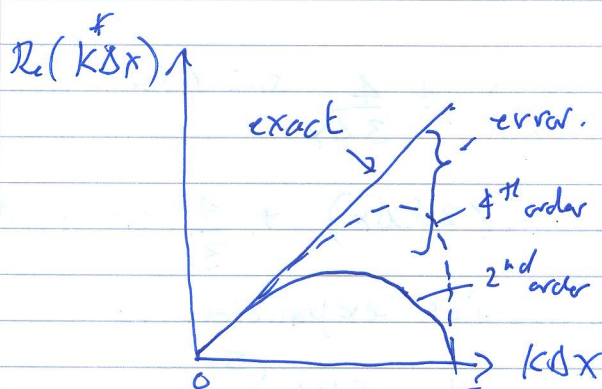 Re(k*Δx)
exact
error.
4th order
2nd order
0
kΔx